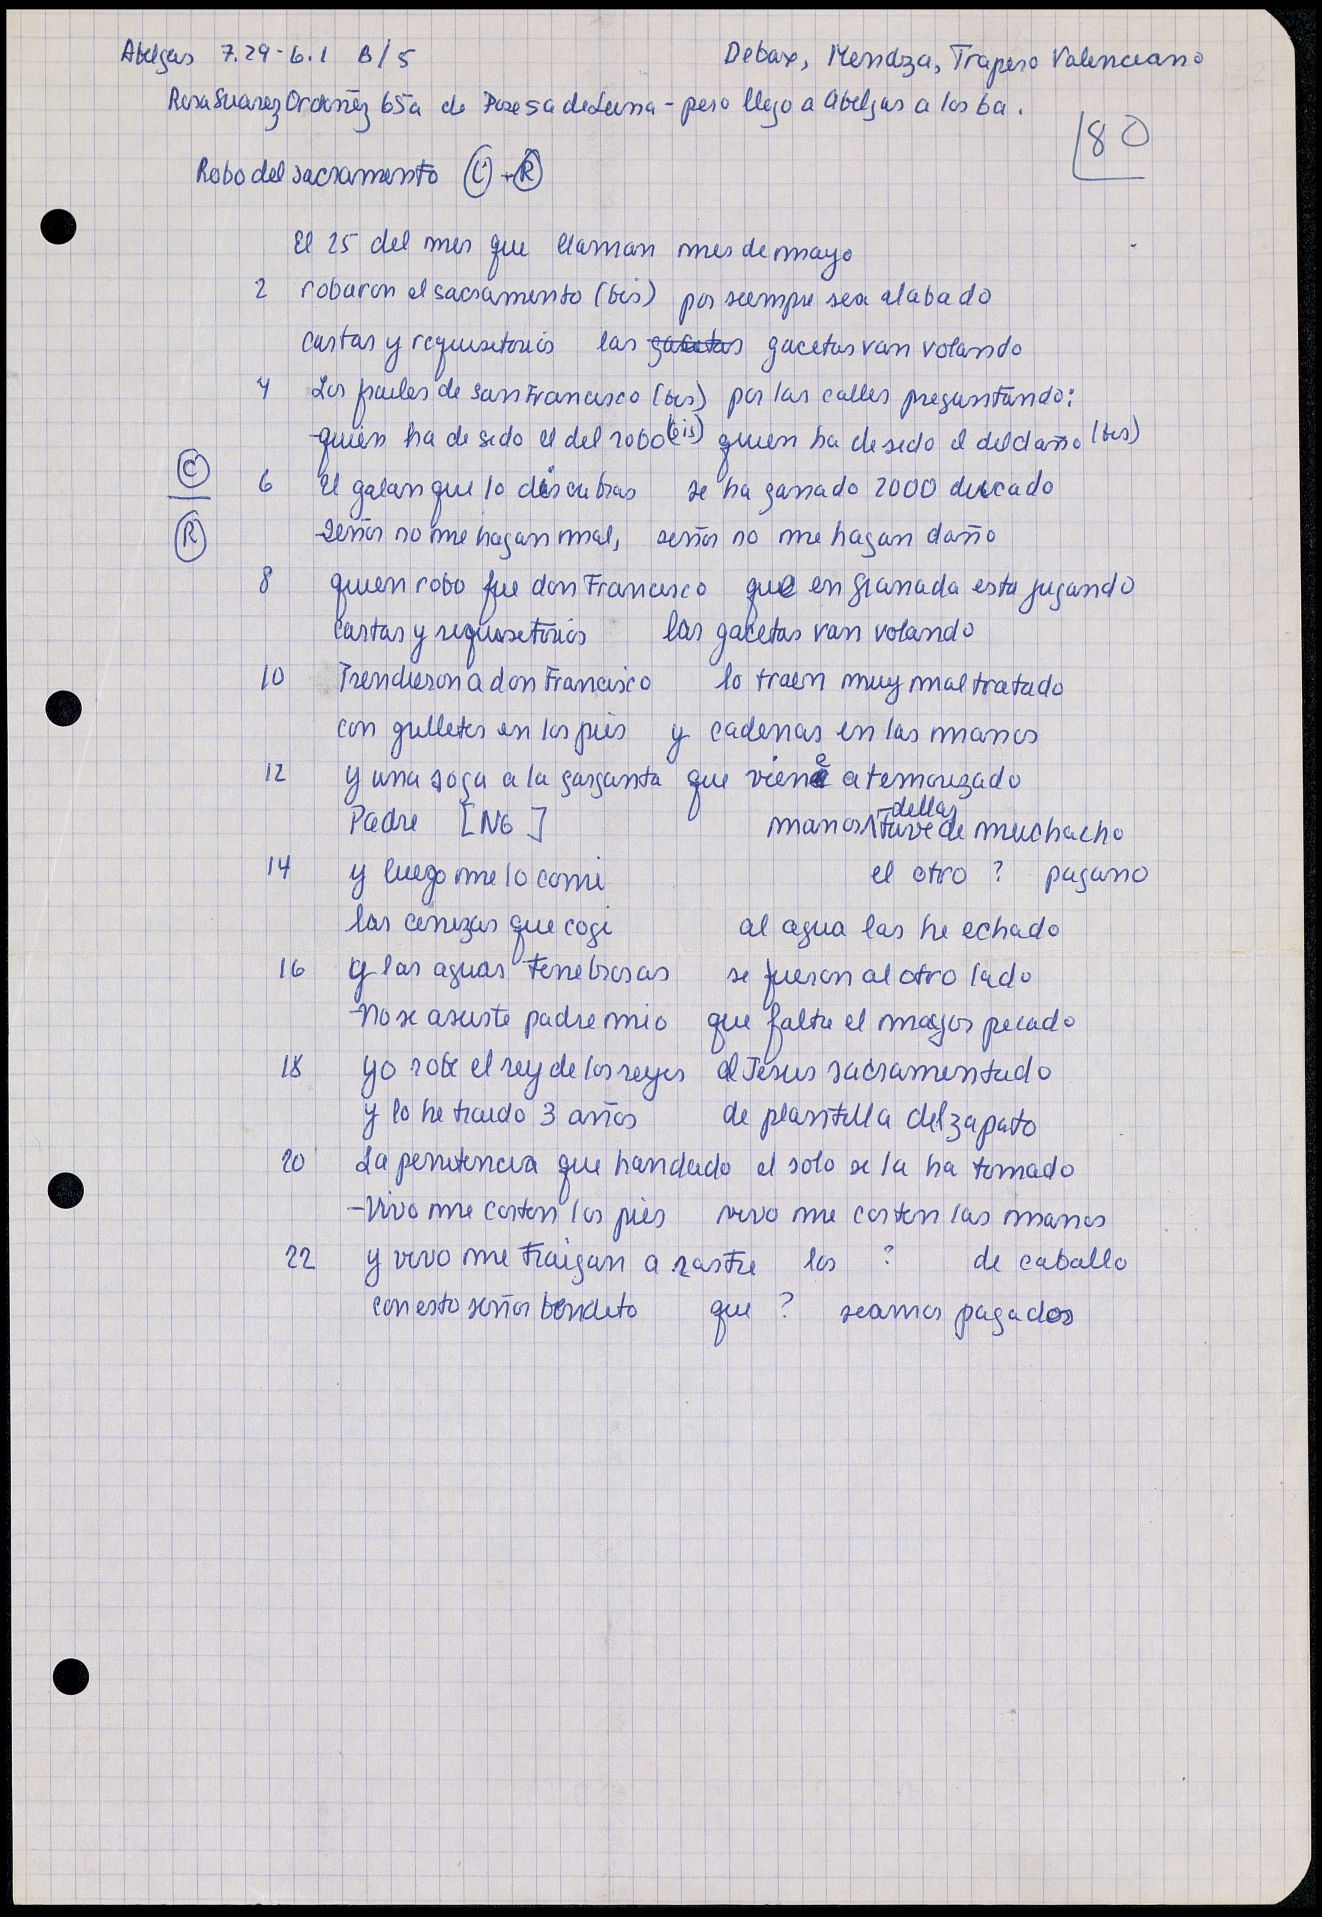 Abelgas 7.29-6.1 B/5 Debax, Mendoza, Trapero Valenciano
Rosa Suarez Ordoñez 65a de Posesa de Luna - pero llego a Abelgas a los 6a.
80
Robo del sacramento (C) + (R)
El 25 del mes que llaman mes de mayo
2 robaron el sacramento (bis) por siempre sea alabado
cartas y requisitorios las gacetas gacetas van volando
4 Los frailes de San Francisco (bis) por las calles preguntando:
-quién ha de sido el del robo (bis) quien ha de sido el del daño (bis)
(C) 6 El galan que lo discubras se ha ganado 2000 ducado
(R) -Señor no me hagan mal, señor no me hagan daño
8 quien robo fue don Francisco que en Granada esta jugando
cartas y requisitorios las gacetas van volando
10 Prendieron a don Francisco lo traen muy mal tratado
con grilletes en los pies y cadenas en las manos
12 y una soga a la garganta que viene atemorizado
Padre [NG] manos dellas tuve de muchacho
14 y luego me lo comi el otro ? pagano
las cenizas que cogi al agua las he echado
16 y las aguas tenebrosas se fueron al otro lado
-No se asuste padre mio que falta el mayor pecado
18 yo robe el rey de los reyes al Jesus sacramentado
y lo he traido 3 años de plantilla del zapato
20 La penitencia que han dado el solo se la ha tomado
-Vivo me corten los pies vivo me corten las manos
22 y vivo me traigan a rastre los ? de caballo
con esto señor bendito que ? seamos pagados